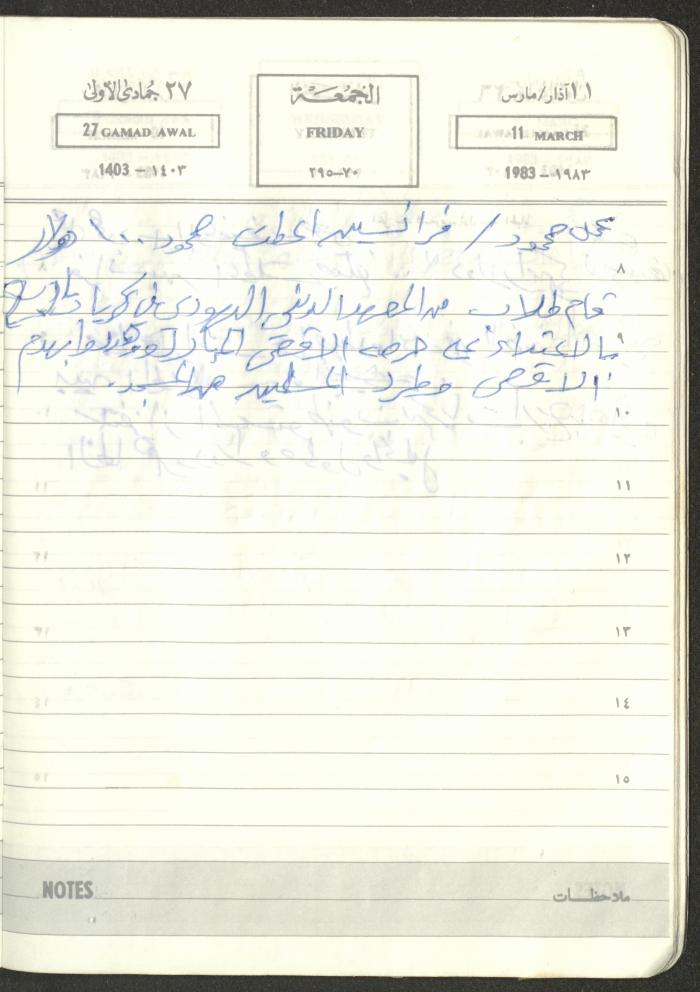 ٢٧ جُمادى الأولى
27 GAMAD AWAL
1403 – ١٤٠٣
الجُمعَة
FRIDAY
٧٠–٢٩٥
١١ آذار/مارس
11 MARCH
1983 – ١٩٨٣
محمود / محمود ... ١٠٠ دولار
٨
قام طلاب من المعهد الديني اليهودي في كريات أربع
٩
بالاعتداء على حرمة الاقصى المبارك بهدم
الاقصى وطرد المسلمين من المسجد.
١٠
١١
١٢
١٣
١٤
١٥
NOTES
ملاحظات